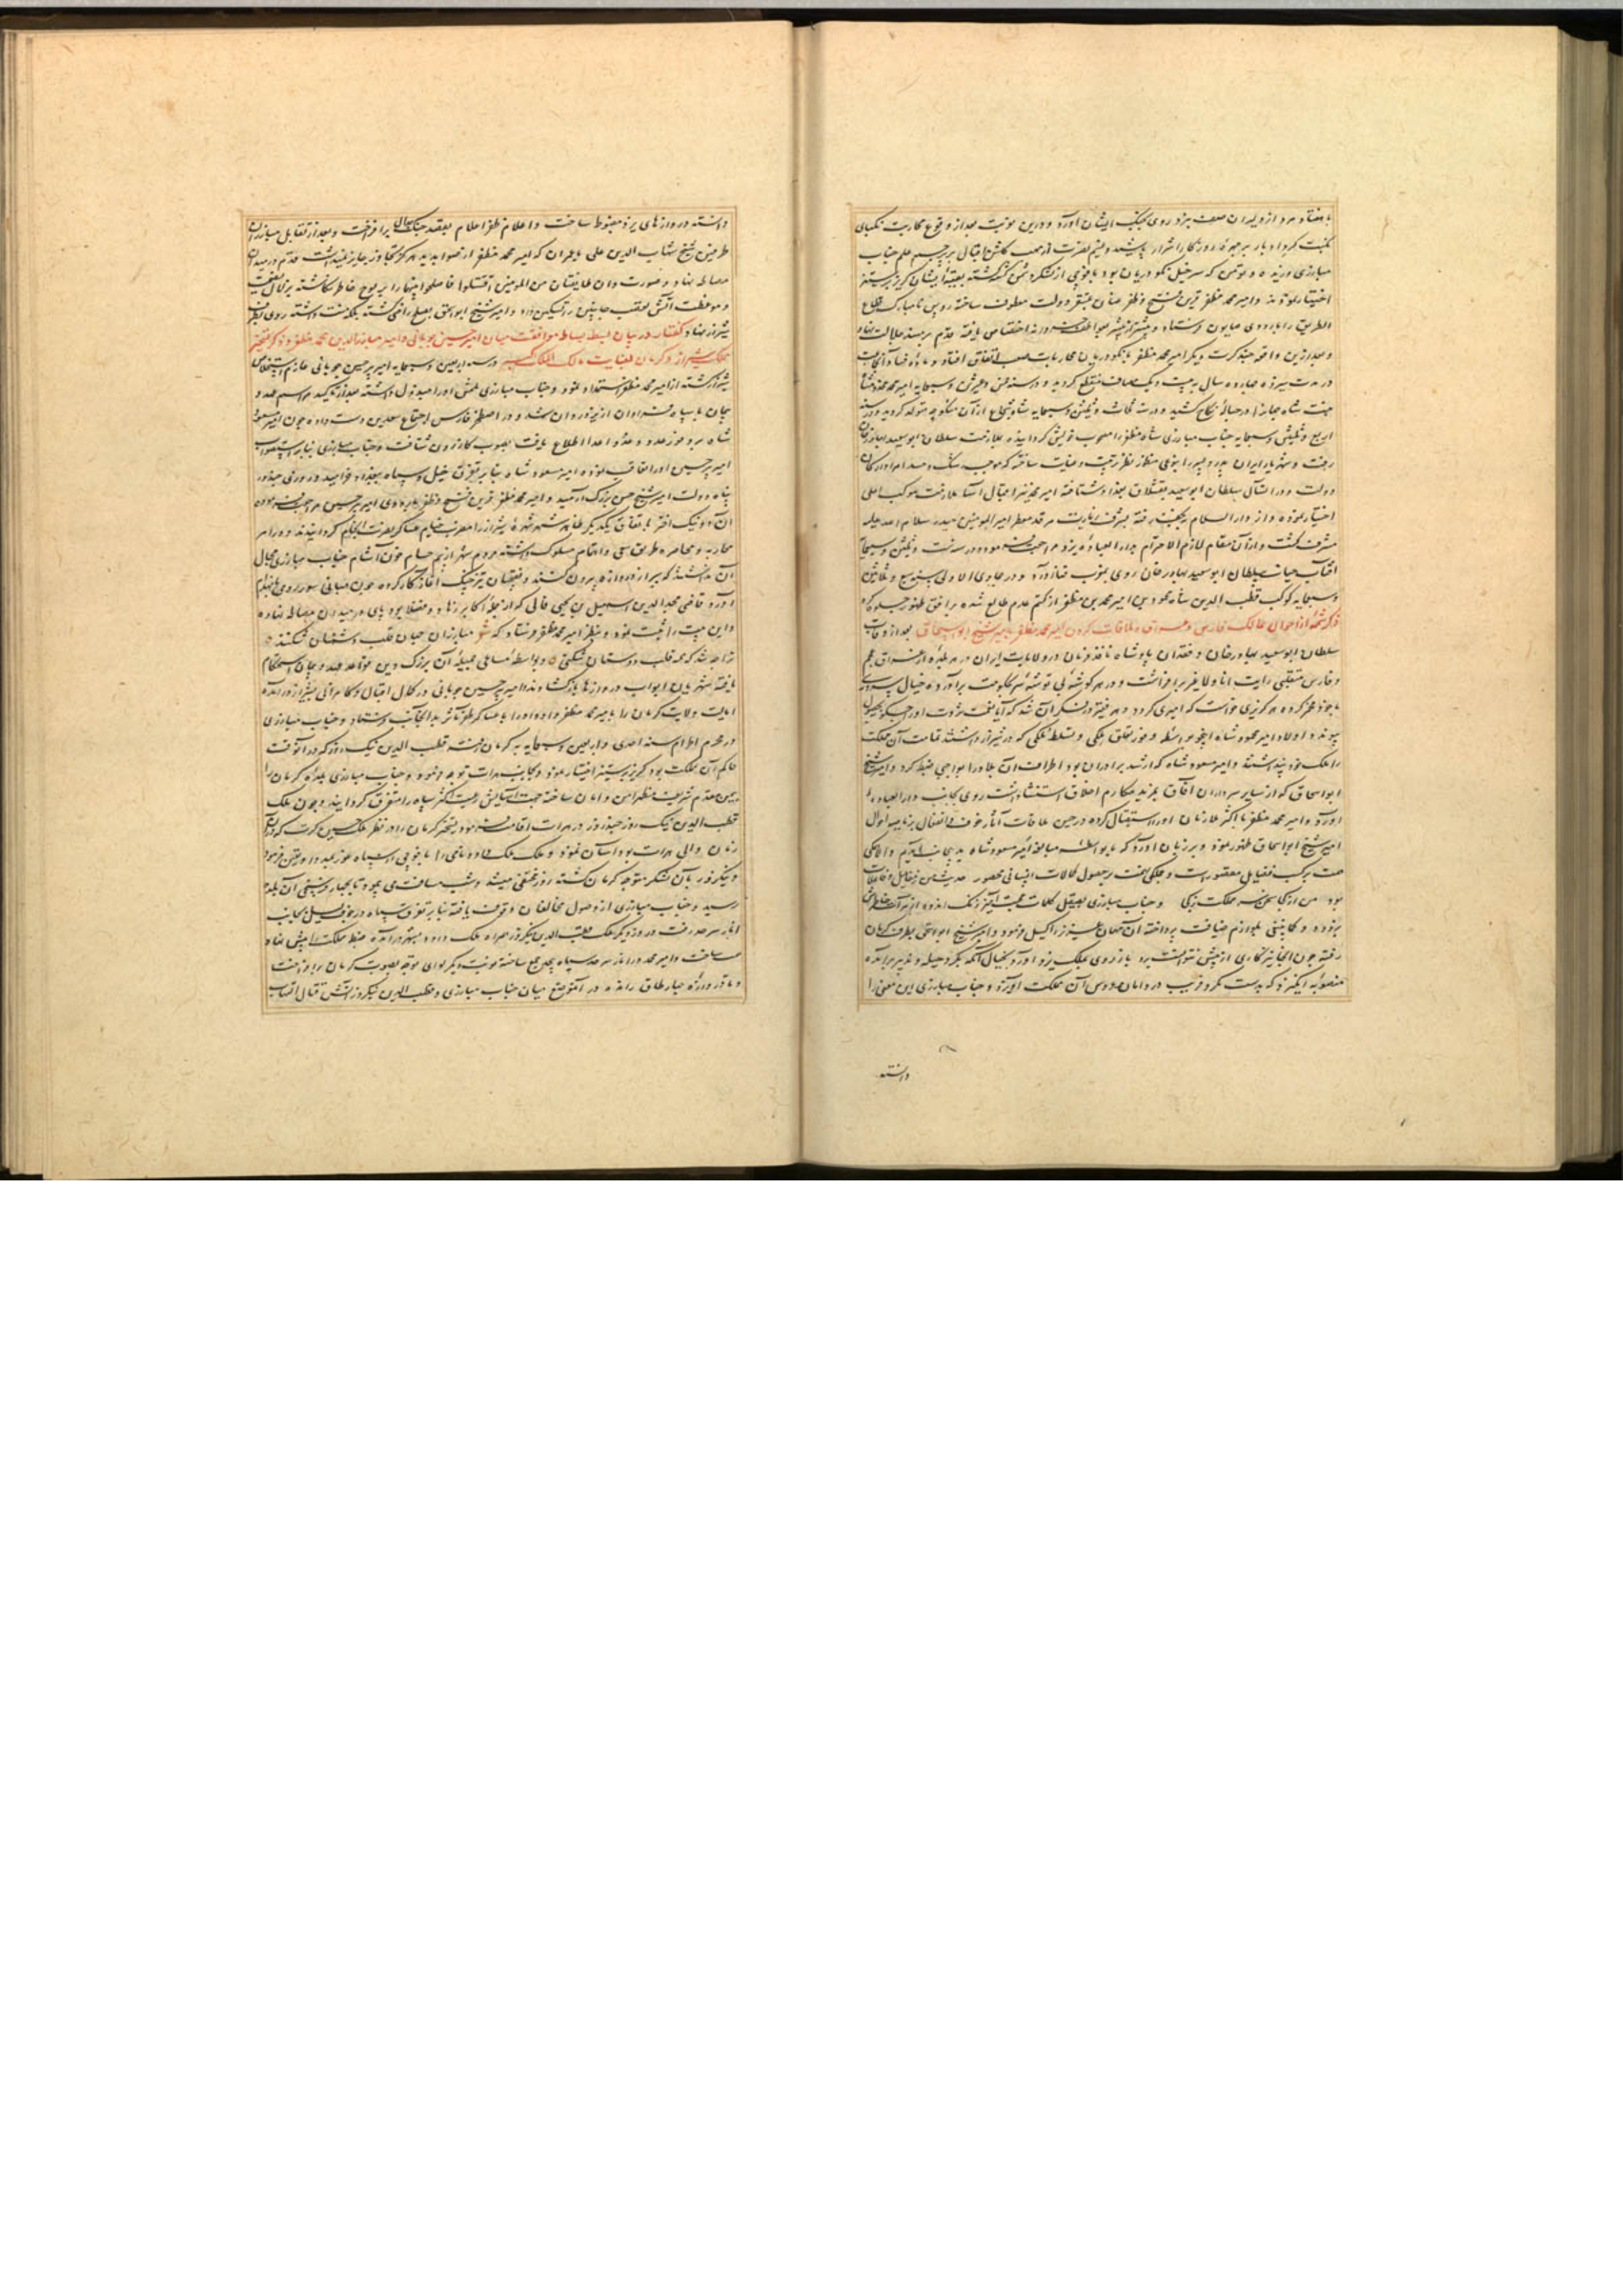 با هفتاد مرد از دلیران صف یزد روی بجنگ ایشان آورد و درین نوبت بعد از وقوع محاربت نکبای
نکبت کرد ادبار بر چهره روزگار اشرار پاشید و نسیم نصرت از مهب گلشن اقبال بر پرچم علم جناب
مبارزی وزیده و نوتمن که سرخیل نکودریان بود با فوجی از لشکر دشمن کشته گشته بقیه ایشان گریز بر ستیز
اختیار نمودند و امیر محمد مظفر قرین فتح و ظفر عنان بمستقر دولت معطوف ساخته رؤس نامبارک قطاع
الطریق را باردوی همایون فرستاد و
و بعد ازین واقعه چند کرت دیگر امیر محمد مظفر با نکودریان محاربات صعب اتفاق افتاد و
در مدت سیزده چهارده سال به بیست و یک مصاف منقطع گردید و در سنه
بنت شاه جهانرا در حباله نکاح کشید و در سنه ثلاث و ثلثین و سبعمایه شاه شجاع از آن منکوحه متولد گردید و در سنه
اربع و ثلثین و سبعمایه جناب مبارزی شاه مظفر را مصحوب خویش گردانیده بملازمت سلطان ابوسعید بهادر خان
رفت و شهریار ایران پدر و پسر را بنوعی منظور نظر تربیت و عنایت ساخت که موجب رشک و حسد امرا و ارکان
دولت و در اثنای سلطان ابوسعید بقشلاق بغداد شتافته امیر محمد نیز اقبال آسا ملازمت موکب اعلی
اختیار نموده و از دار السلام بنجف رفته بشرف زیارت مرقد معطر امیر المومنین حیدر سلام الله علیه
مشرف گشت و از آن مقام لازم الاحترام بدار العباده یزد مراجعت فرموده و در سنه ست و ثلثین و سبعمایه
آفتاب حیات سلطان ابوسعید بهادر خان روی بغروب فنا آورد و در جمادی الاولی سنه سبع و ثلاثین
و سبعمایه کوکب قطب الدین شاه محمود بن امیر محمد بن مظفر از کتم عدم طالع شده بر افق ظهور جلوه کرد
ذکر شمه از احوال ممالک فارس و عراق و ملاقات کردن امیر محمد مظفر با امیر شیخ ابو اسحاق بعد از وفات
سلطان ابوسعید بهادر خان و فقدان پادشاه نافذ فرمان در ولایات ایران در هر بلده از عراق عجم
و فارس متغلبی رایت انا و لا غیر برافراشت و در هر گوشه بی توشه سر بحکومت برآورده خیال سروری
با خود مخمر کرده هر گزیری خواست که امیری گردد و هر فقیر در فکر آن شد که
پیوندد اولاد امیر محمود شاه اینجو بواسطه وفور تعلق ملکی و تسلط ملکی که در شیراز داشتند تمامت آن مملکت
را ملک خود پنداشتند و امیر مسعود شاه که ارشد برادران بود اطراف آن بلاد را بواجبی ضبط کرد و امیر شیخ
ابو اسحاق که از سایر سروران آفاق بمزید مکارم اخلاق استثنا داشت روی بجانب دار العباده
آورد و امیر محمد مظفر با اکثر ملازمان او را استقبال کرده در حین ملاقات آثار خوف و انفعال بر ناصیه احوال
امیر شیخ ابو اسحاق ظهور نموده و بر زبان آورد که بواسطه مبالغه امیر مسعود شاه بدینجانب آمدیم والا همگی
همت بر کسب فضایل مقصور است و جملگی نهمت بر حصول کمالات انسانی محصور
بود من از کجا سخن سر مملکت ز کجا و جناب مبارزی بصیقل کلمات محبت آمیز زنگ اندوه از مرآت خاطرش
بزدوده و کماینبغی بلوازم ضیافت پرداخته آن مهمان عزیز را گسیل فرمود و امیر شیخ ابو اسحق بطرف کرمان
رفته چون آنجا نیز کاری از پیش نتوانست برد باز روی بملک یزد آورد بخیال آنکه بمکر و حیله و تدبیر
منصوبه انگیزد که بدست مکر و فریب در دامان عروس آن مملکت آویزد و جناب مبارزی این معنی را
دانسته
دانسته دروازهای یزد مضبوط ساخت و اعلام ظفر اعلام بقصد جنگ برافراخت و بعد از تقابل مبارزان
طرفین شیخ شهاب الدین علی باعمران که امیر محمد مظفر از صوابدید او هرگز تجاوز جایز نمیداشت قدم در میدان
مصالحه نهاد و صورت و ان طایفتان من المومنین اقتتلوا فاصلحوا بینهما را بر لوح خاطر نگاشته بزلال نصیحت
و موعظت آتش تعصب جانبین را تسکین داد و امیر شیخ ابو اسحق بصلح راضی گشته بلکه منت داشته روی بطرف
شیراز نهاد گفتار در بیان بسط بساط موافقت میان امیر پیر حسین چوپانی و امیر مبارز الدین محمد مظفر و ذکر تسخیر
مملکت شیراز و کرمان بعنایت مالک الملک در سنه اربعین و سبعمایه امیر پیر حسین چوپانی عازم استخلاص
شیراز گشته از امیر محمد مظفر استمداد نمود و جناب مبارزی ملتمس او را مبذول داشته بعد از تاکید مراسم عهد و
پیمان با سپاه فراوان از یزد روان شد و در اصطخر فارس اجتماع سعدین دست داده چون امیر مسعود
شاه بر وفور عدد و عدو اعدا اطلاع یافت بصوب کازرون شتافت و جناب مبارزی بنابر استصواب
امیر پیر حسین او را تعاقب نموده امیر مسعود شاه بنابر تفرق خیل و سپاه ببغداد خرامید و روزی چند در
پناه دولت امیر شیخ حسن بزرگ آرمید و امیر محمد مظفر قرین فتح و ظفر باردوی امیر پیر حسین مراجعت فرموده
آن دو نیک اختر باتفاق یکدیگر ظاهر شهر شیراز را مضرب خیام عساکر نصرت انجام گردانیدند و در امر
محاربه و محاصره طریق سعی و اهتمام مسلوک داشته مردم شهر از بیم حسام خون آشام جناب مبارزی مجال
آن نداشتند که سر از دروازه بیرون کنند و نقبچیان تیزچنگ آغاز کار کرده چون مبانی سور روی بانهدام
آورد قاضی مجد الدین اسمعیل بن یحیی فالی که از جمله اکابر و فضلا بود پای در میدان مصالحه نهاده
و این بیت را ثبت نمود و بنظر امیر محمد مظفر فرستاد که شعر مبارزان جهان قلب دشمنان شکنند
ترا چه شد که همه قلب دوستان شکنی و بواسطه مساعی جمیله آن بزرگ دین قواعد عهد و پیمان استحکام
یافته شهریان ابواب دروازها بازگشادند و امیر پیر حسین چوپانی در کمال اقبال و کامرانی بشیراز درآمده
ایالت ولایت کرمان را بامیر محمد مظفر داده او را با عساکر ظفر مآثر بدانجانب فرستاد و جناب مبارزی
در محرم الحرام سنه احدی و اربعین و سبعمایه بکرمان رفت قطب الدین نیک روز که در آنوقت
حاکم آن مملکت بود گریز بر ستیز اختیار نمود و بجانب هرات توجه فرمود و جناب مبارزی بلده کرمان را
بیمن مقدم شریف مظهر امن و امان ساخته جهت آسایش رعیت اکثر سپاه را متفرق گردانید و چون ملک
قطب الدین نیک روز چند روز در هرات اقامت فرمود تسخیر کرمان را در نظر ملک حسین کرت که در آن
زمان والی هرات بود آسان نمود و ملک ملک داود نامی را با فوجی از سپاه غور بمدد او تعیین فرمود
و نیکروز با آن لشکر متوجه کرمان گشته روز مختفی میشد و شب مسافت می پیمود تا بچهار فرسخی آن بلده
رسید و جناب مبارزی از وصول مخالفان وقوف یافته بنابر تفرق سپاه در جوف لیل بجانب
انار سرحد رفت و روز دیگر ملک قطب الدین نیکروز همراه ملک داود بشهر درآمده ضبط مملکت را پیش نهاد
همت ساخت و امیر محمد در انار سرحد سپاه
و تا دروازه چهار طاق رانده در آنموضع میان جناب مبارزی و قطب الدین نیکروز آتش قتال التهاب